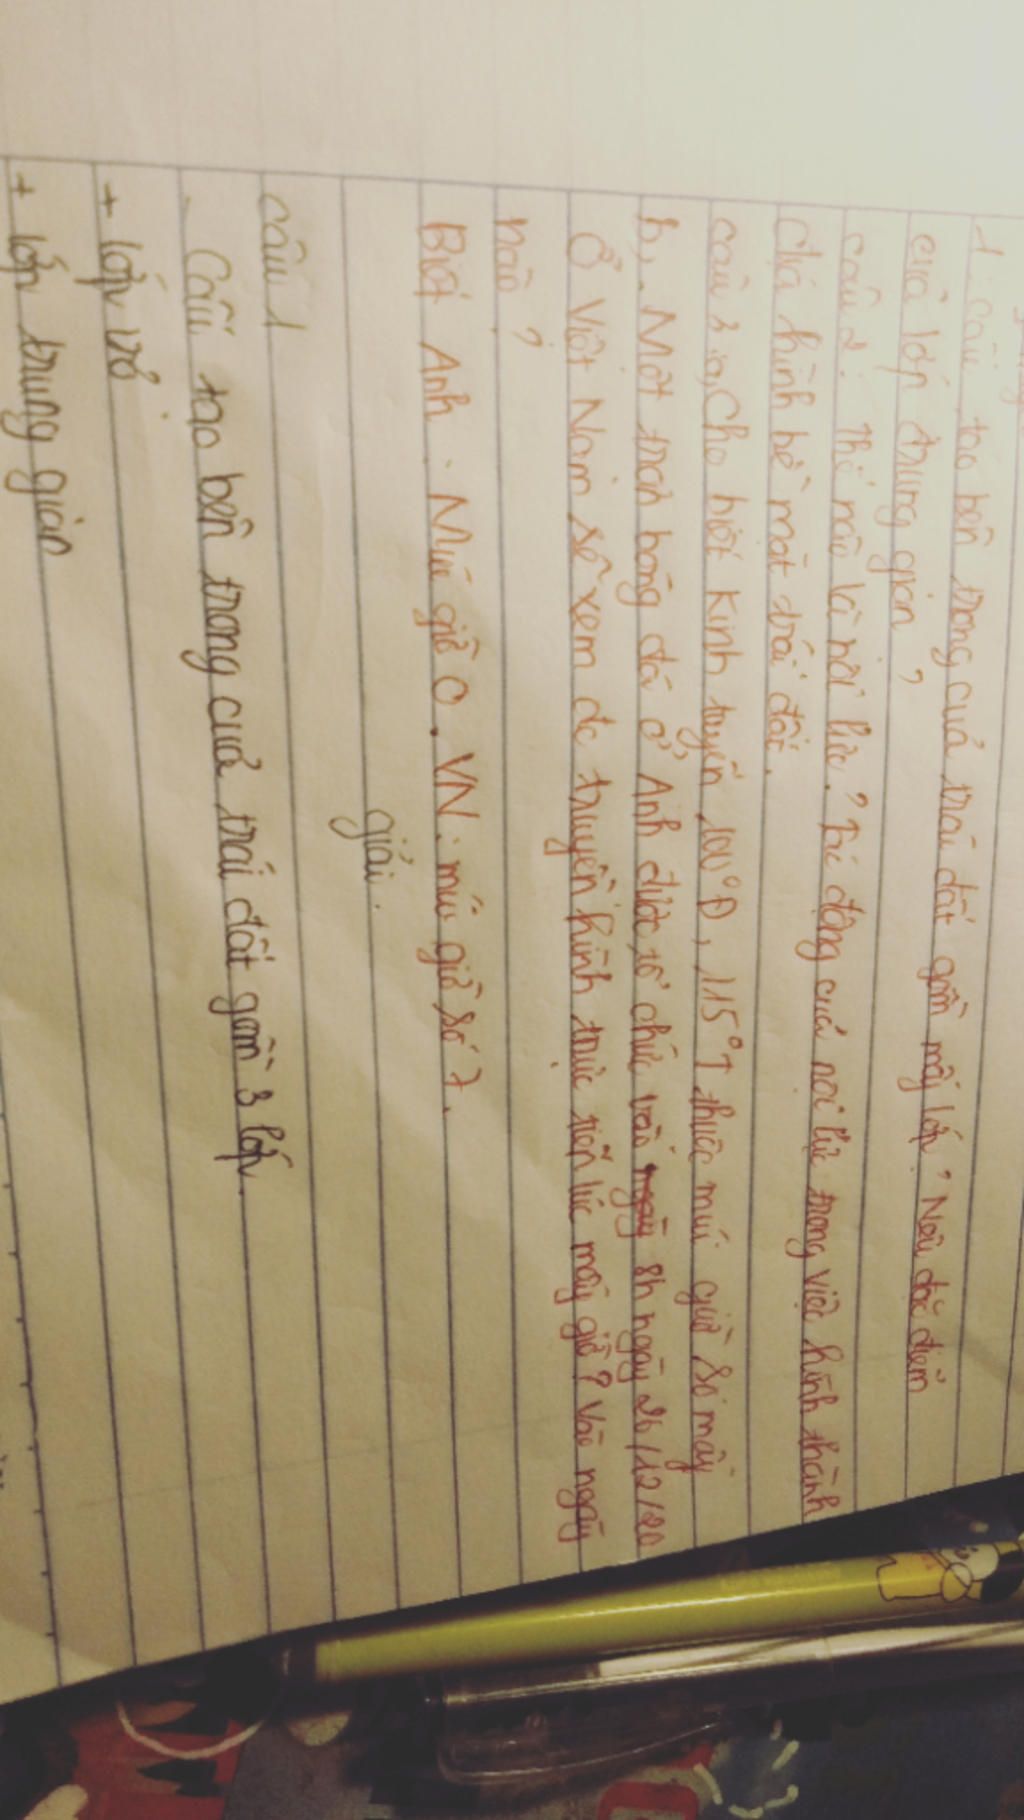 1. Cấu tạo bên trong của trái đất gồm mấy lớp? Nêu đặc điểm
của lớp trung gian?
câu 2: Thế nào là nội lực? Tác động của nội lực trong việc hình thành
địa hình bề mặt trái đất.
câu 3 a, Cho biết Kinh tuyến 100°Đ, 115°T thuộc múi giờ số mấy
b, Một trận bóng đá ở Anh được tổ chức vào 8h ngày 26/12/20
Ở Việt Nam sẽ xem đc truyền hình trực tiếp lúc mấy giờ? Vào ngày
nào?
Biết Anh: Múi giờ 0. VN: múi giờ số 7.
giải.
câu 1
- Cấu tạo bên trong của trái đất gồm 3 lớp.
+ lớp vỏ
+ lớp trung gian